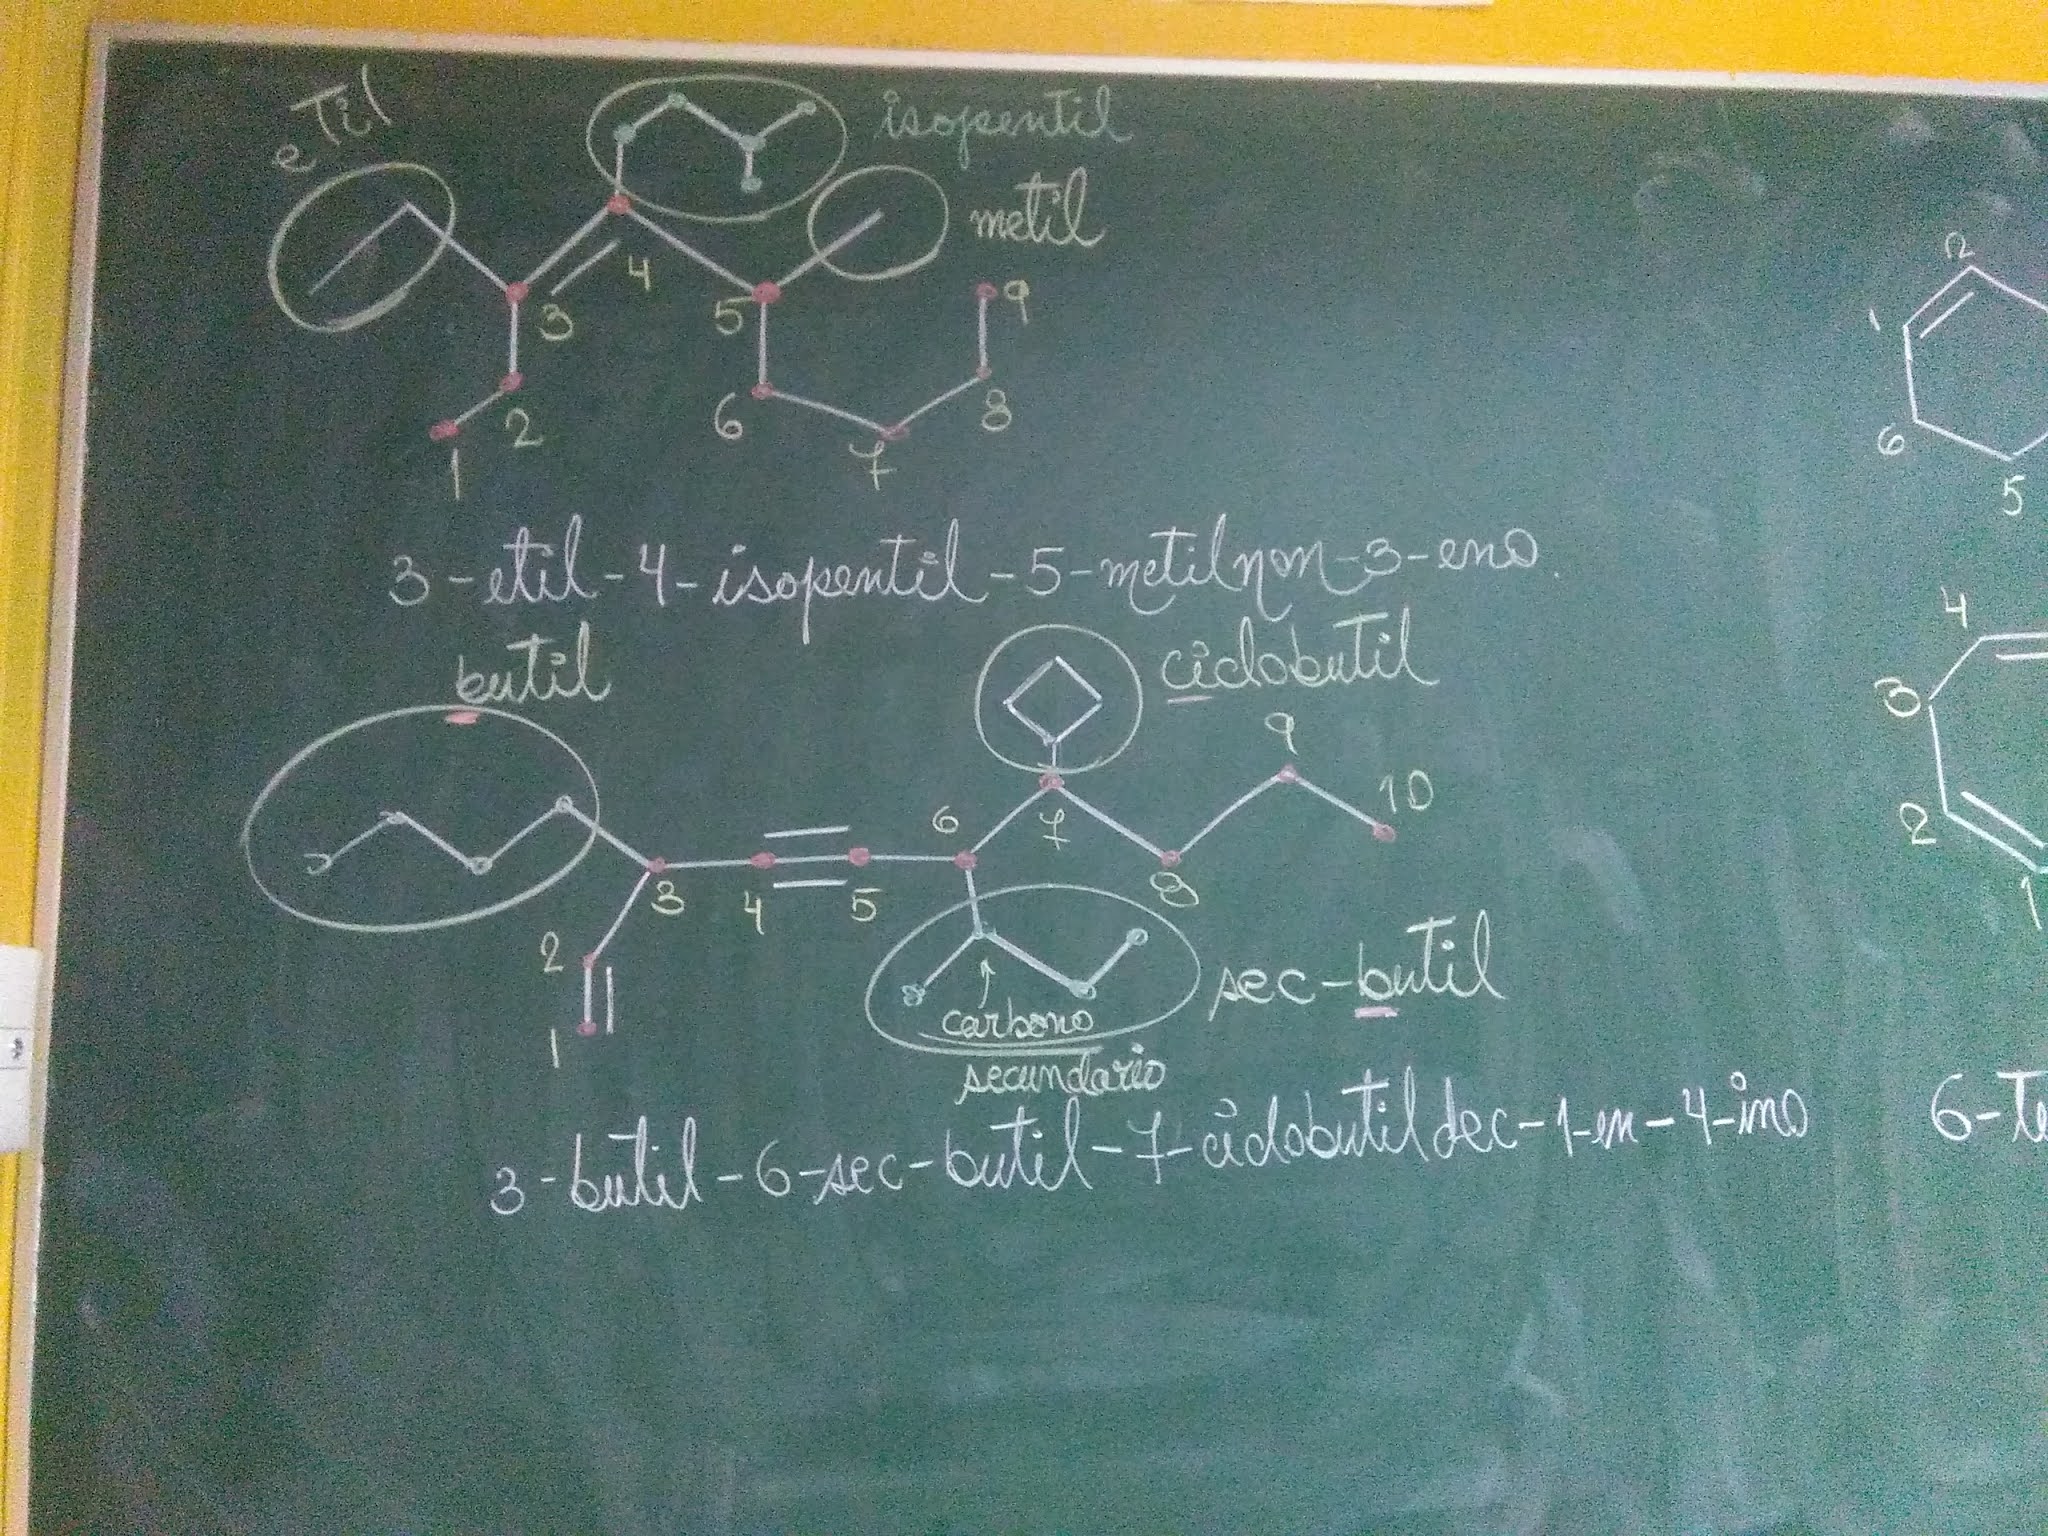 etil
isopentil
metil
1 2 3 4 5 6 7 8 9
3-etil-4-isopentil-5-metilnon-3-eno.
butil
ciclobutil
1 2 3 4 5 6 7 8 9 10
sec-butil
carbono
secundario
3-butil-6-sec-butil-7-ciclobutildec-1-en-4-ino
1 2 5 6
1 2 3 4
6-te